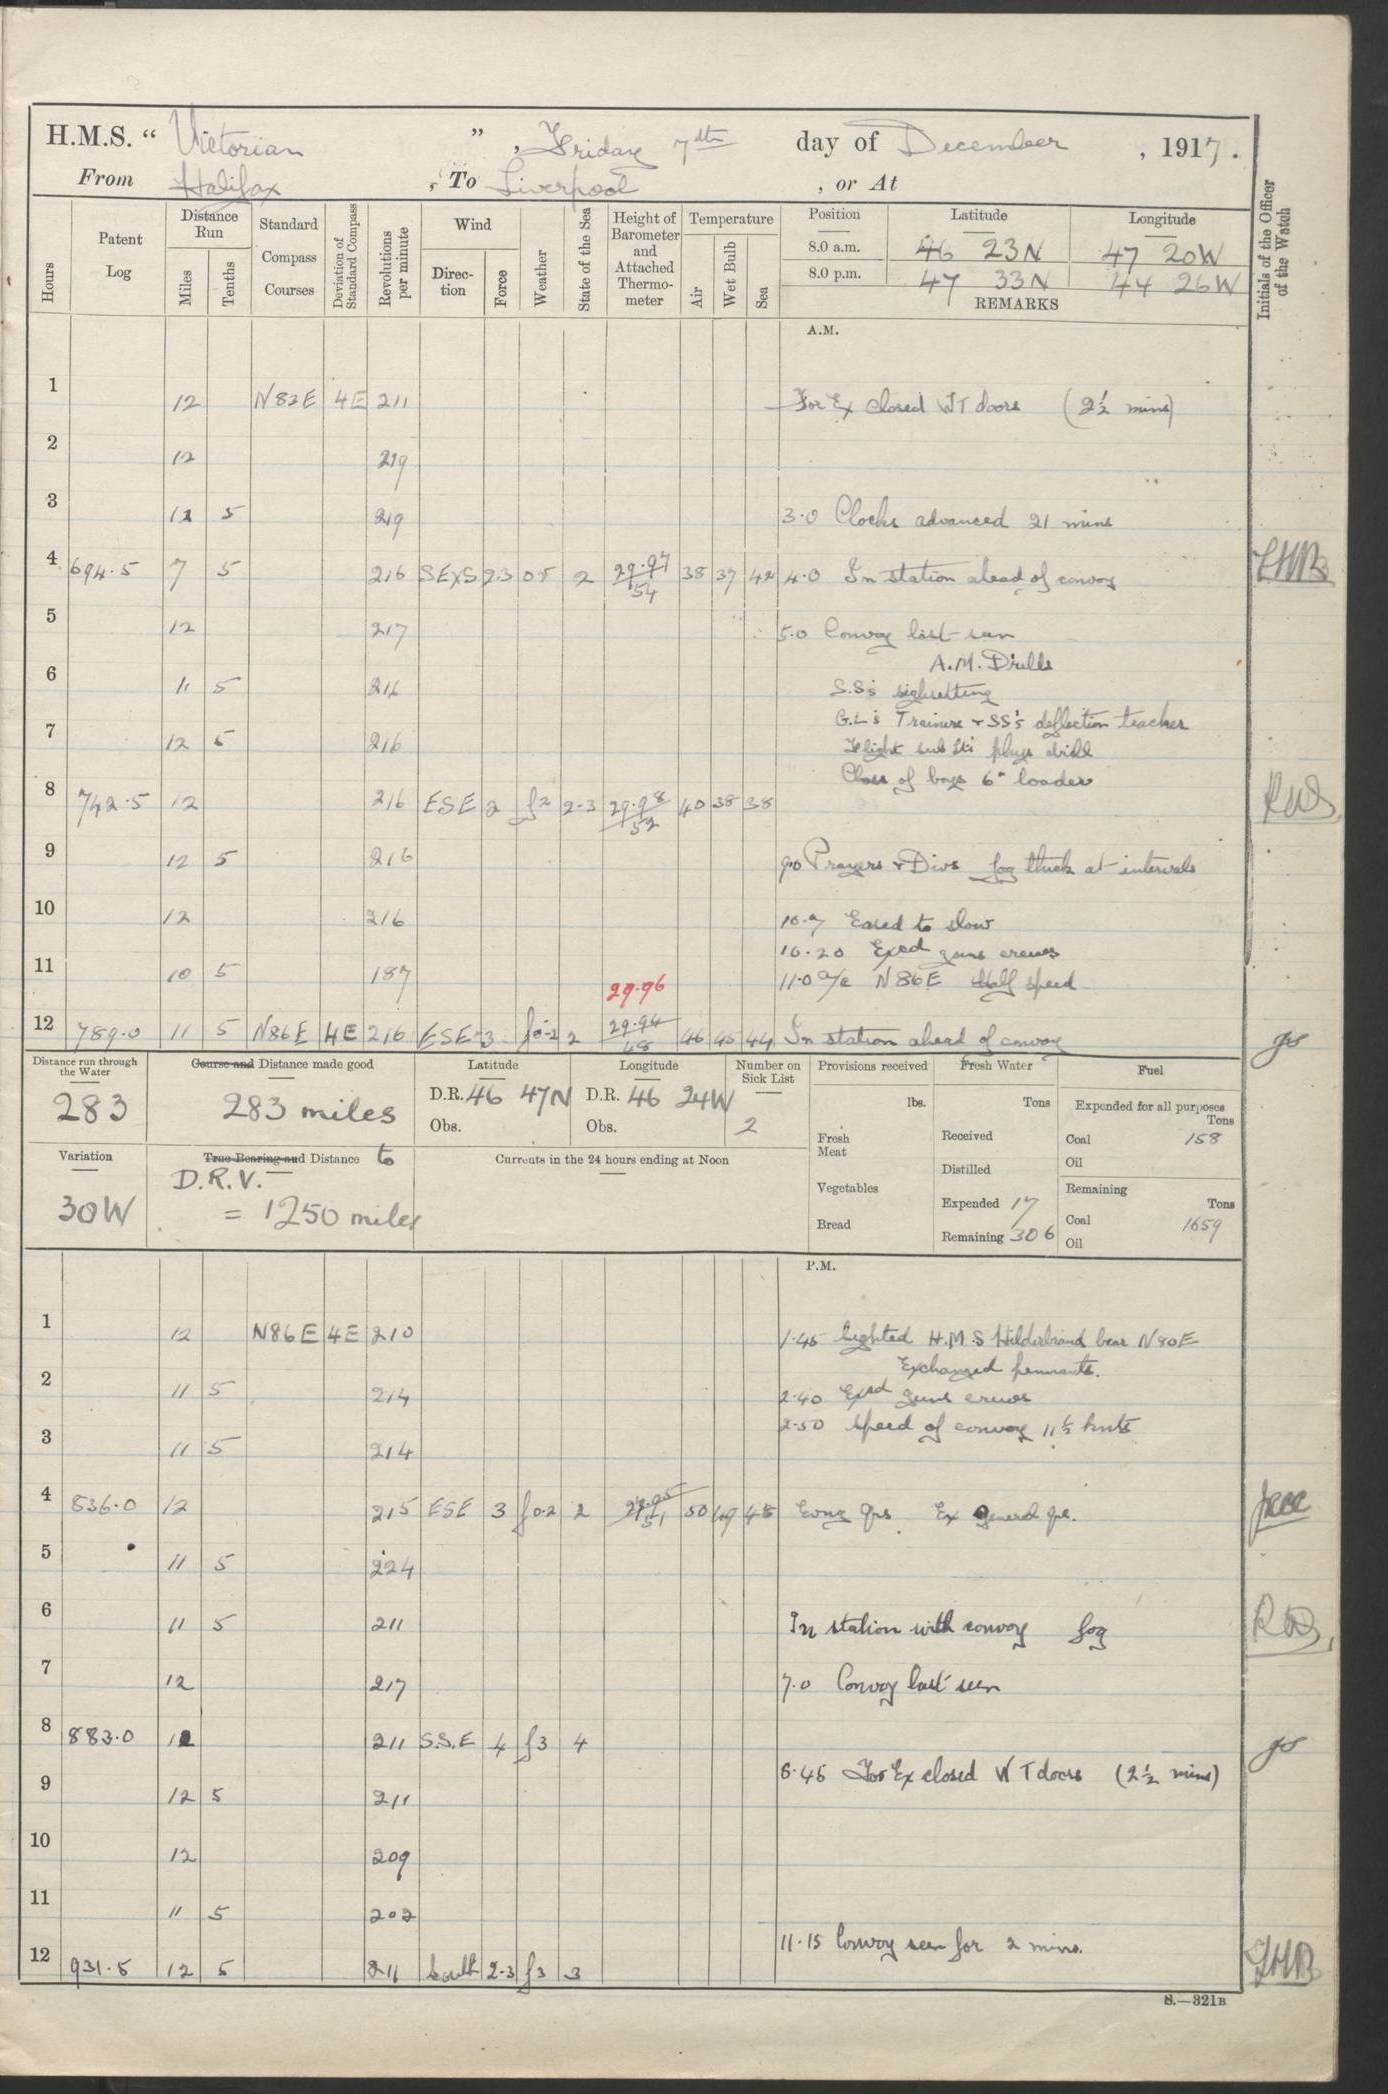 H.M.S. “ Victorian ” , Friday 7th day of December , 1917.
From Halifax , To Liverpool , or At
Hours Patent Log Distance Run Miles Tenths Standard Compass Courses Deviation of Standard Compass Revolutions per minute Wind Direction Force Weather State of the Sea Height of Barometer and Attached Thermometer Temperature Air Wet Bulb Sea Position Latitude Longitude Initials of the Officer of the Watch
8.0 a.m. 46 23N 47 20W
8.0 p.m. 47 33N 44 26W
REMARKS
A.M.
1 12 N82E 4E 211 For Ex closed WT doors (2½ mins)
2 12 219
3 12 5 219 3.0 Clocks advanced 21 mins
4 694.5 7 5 216 SExS 2.3 2 29.97 54 38 37 42 4.0 In station ahead of convoy
5 12 217 5.0 Convoy last seen
A.M. Drills
6 11 5 216 S.S's sightsetting
G.L's Trainers + SS's deflection teacher
7 12 5 216 Flight sub Lt's plugs drill
Class of boys 6" loader
8 742.5 12 216 ESE 2 f2 2-3 29.98 52 40 38 38
9 12 5 216 9.0 Prayers + Divs fog thick at intervals
10 12 216 10.7 Eased to slow
10.20 Exed guns crews
11 10 5 187 11.0 a/c N86E Half speed
29.96
12 789.0 11 5 N86E 4E 216 ESE 3 2 29.94 48 46 45 44 In station ahead of convoy
Distance run through the Water 283
Course and Distance made good 283 miles
Latitude D.R. 46 47N Obs.
Longitude D.R. 46 24W Obs.
Number on Sick List 2
Provisions received lbs. Fresh Meat Vegetables Bread
Fresh Water Tons Received Distilled Expended 17 Remaining 306
Fuel Expended for all purposes Tons Coal 158 Oil Remaining Tons Coal 1659 Oil
Variation 30W
True Bearing and Distance to D.R.V. = 1250 miles
Currents in the 24 hours ending at Noon
P.M.
1 12 N86E 4E 210 1.45 Sighted H.M.S Hilderbrand bear N80E
Exchanged pennants.
2 11 5 214 2.40 Exed guns crews
2.50 Speed of convoy 11½ knts
3 11 5 214
4 836.0 12 215 ESE 3 2 29.95 51 50 49 45 Evng Qrs Ex General Qrs.
5 11 5 224
6 11 5 211 In station with convoy fog
7 12 217 7.0 Convoy last seen
8 883.0 12 211 S.S.E 4 f3 4
8.45 For Ex closed WT doors (2½ mins)
9 12 5 211
10 12 209
11 11 5 202
11.15 Convoy seen for 2 mins.
12 931.5 12 5 211 South 2-3 f3 3
S.—321B